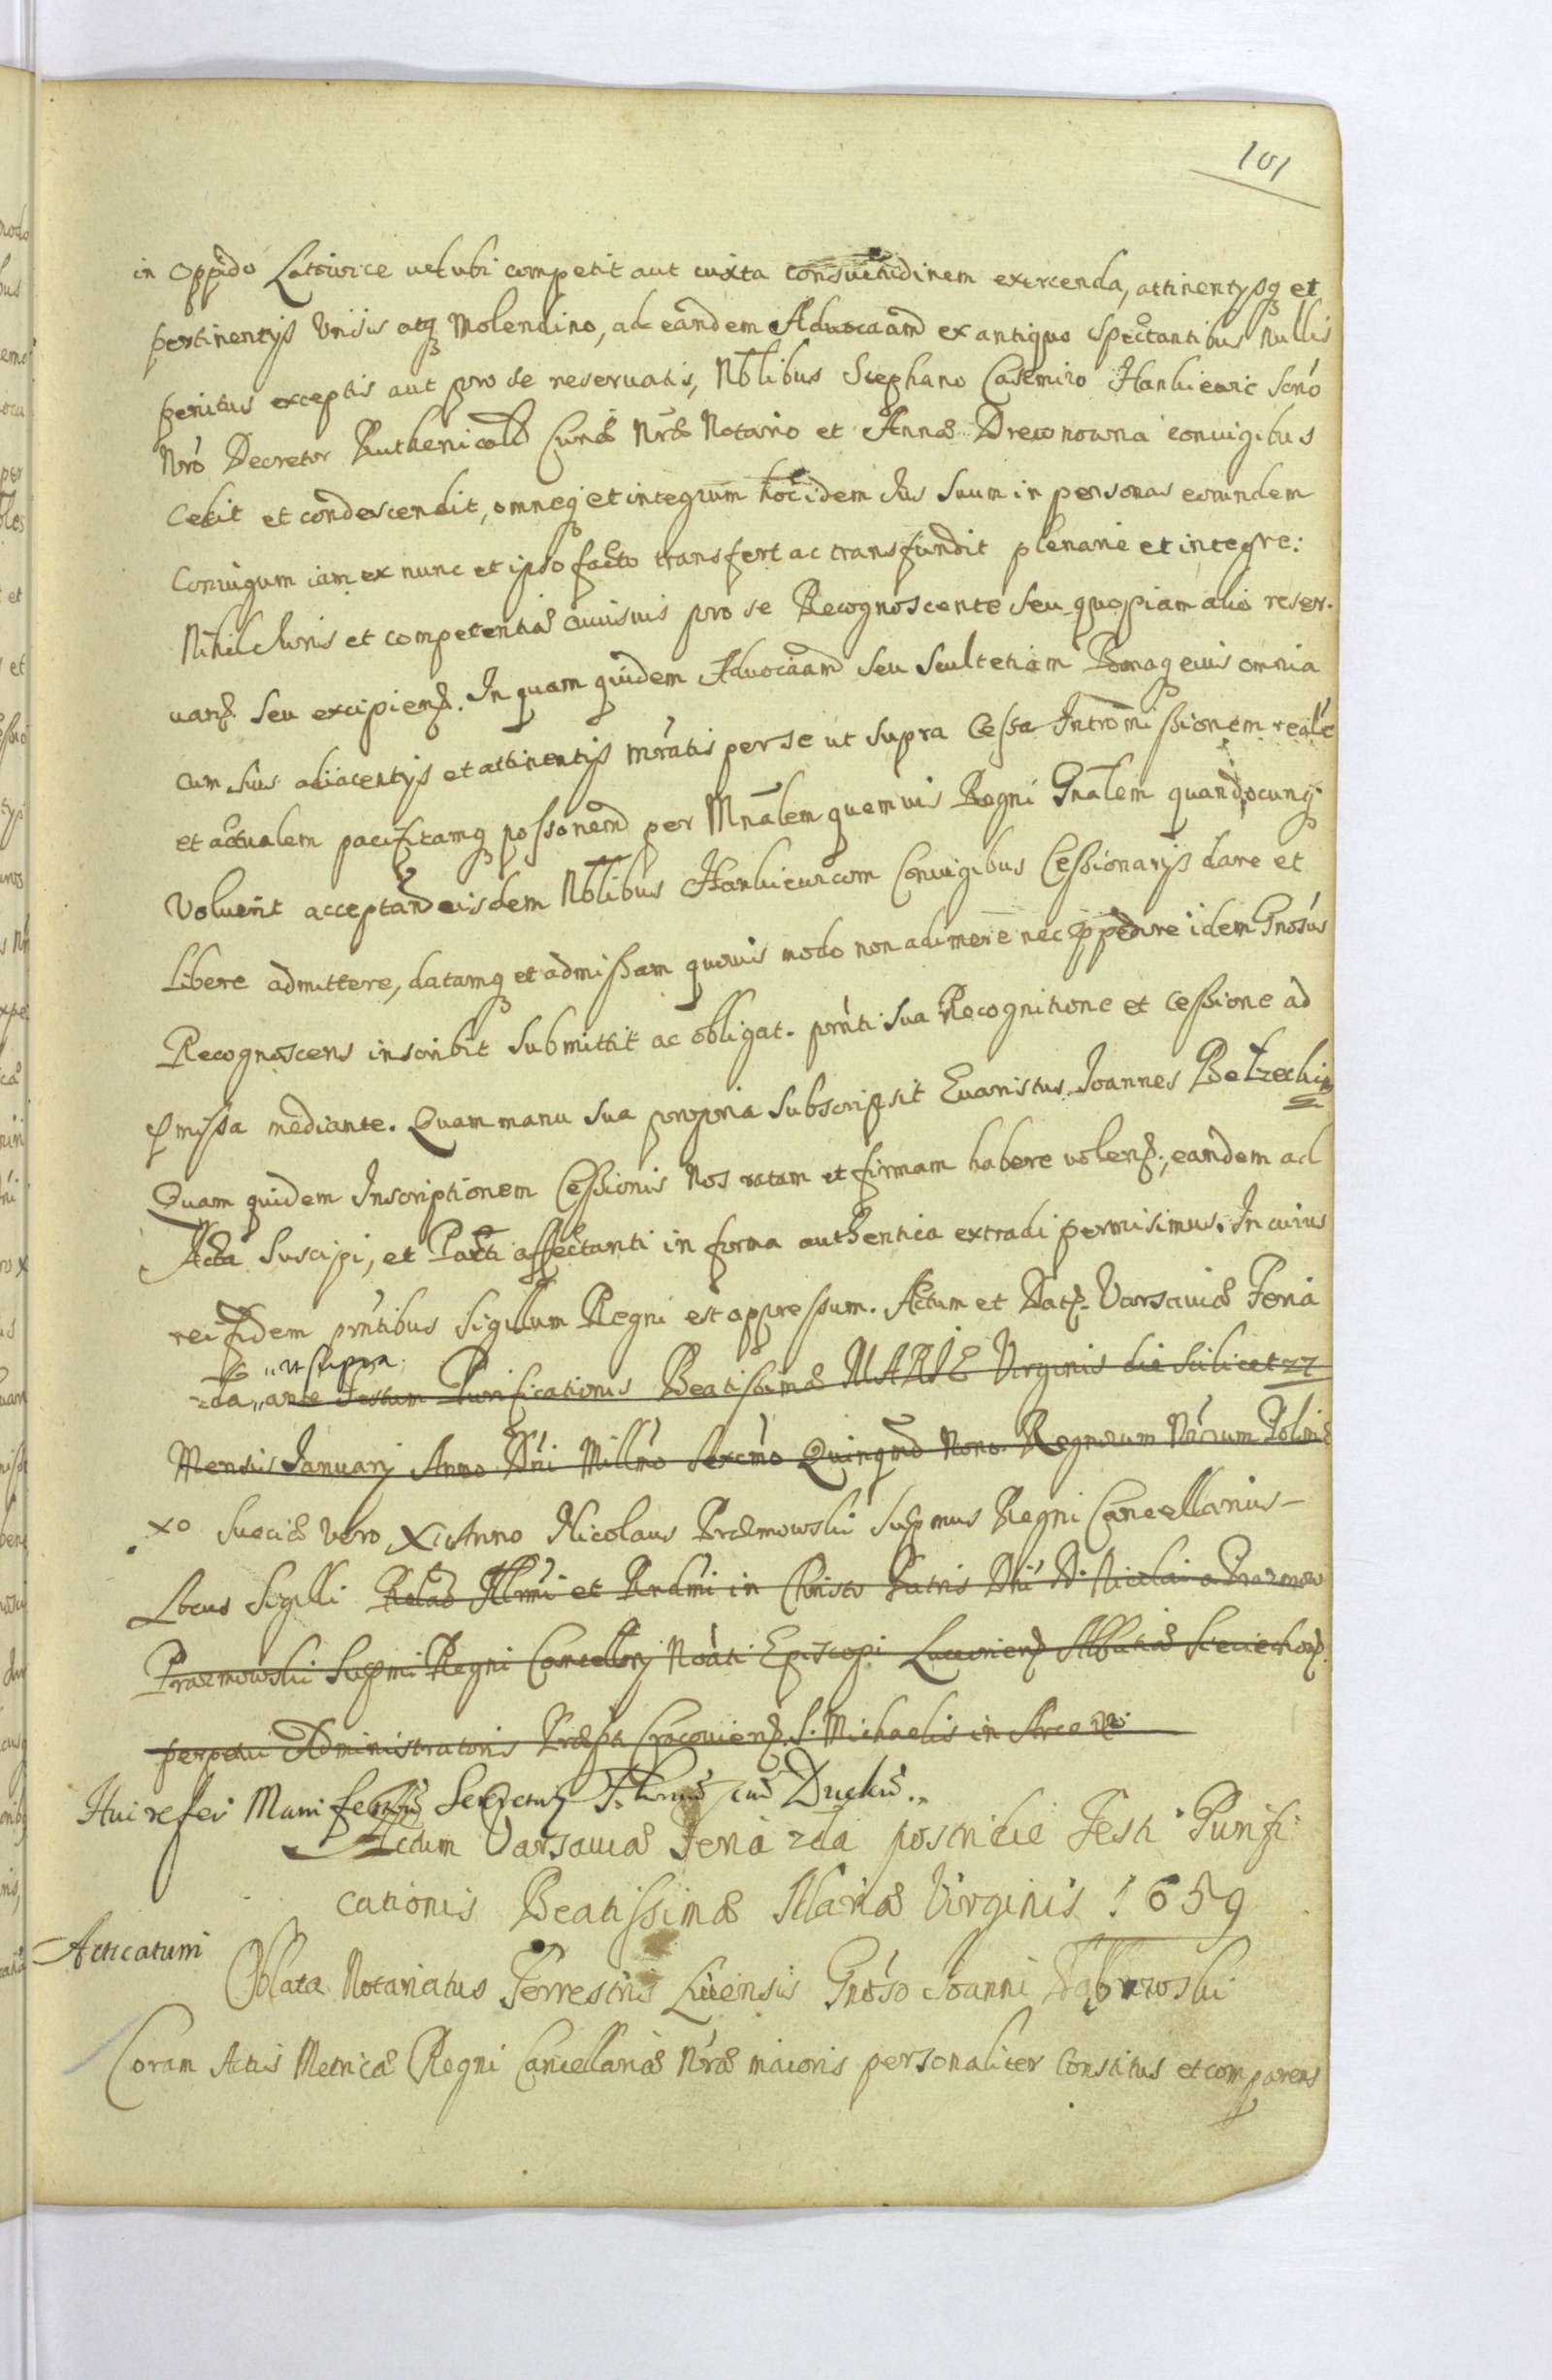 101
in Oppido Latowice uel ubi competit aut iuxta consuetudinem exercenda, attinentysq et
pertinentys Vniis atq Molendino, ad eandem Aduocaām ex antiquo spectantibus nullis
penitus exceptis aut pro se reseruatis, Nblibus Stephano Casimiro Hankiewic Scrio
Nrō Decretor Ruthenicoru Curiæ Nræ Notario et Annæ Drewnowna coniugibus
Cedit et condescendit, omneq et integrum hoc idem Ius suum in personas eorundem
Coniugum iam ex nunc et ipso facto transfert ac transfundit plenarie et integre:
Nihil Iuris et competentiæ cuiusuis pro se Recognoscente seu quopiam alio reser-
uanđ seu excipienđ. In quam quidem Aduocaām seu Scultetiam Bonaq eius omnia
cum suis adiacentys et attinentys mratis per se ut supra Cessa Intromissionem realē
et actualem pacificamq possonem per Mnālem quemuis Regni Gnālem quandocunq
Voluerit acceptand eisdem Nblibus Hankiewicom Coniugibus Cessionarys dare et
libere admittere, datamq et admissam quouis modo non adimere nec impedire idem Gnosus
Recognoscens inscribit submittit ac obligat. prnti sua Recognitione et Cessione ad
pmissa mediante. Quam manu sua propria subscripsit Euaristus Joannes Bełzecki m
Quam quidem Inscriptionem Cessionis Nos ratam et firmam habere volenꝭ, eandem ad
Acta suscipi, et Parti affectanti in forma authentica extradi permisimus. In cuius
rei fidem prntibus Sigillum Regni est appressum. Actum et Datꝭ Varsauiæ Feria
ut supra
2da ante Festum Purificationis Beatissimæ MARIÆ Virginis die scilicet 27
Mensis Januarij Anno Dni Millmo Sexcmo Quinqmo Nono Regnorum Nrorum Poloniæ
xo Sueciæ Vero XI Anno Nicolaus Prazmowski Supmus Regni Cancellarius
Locus Sigilli Relao Illrmi et Rndmi in Christo Patris Dni D. Nicolai a Prazmow
Prazmowski Supmi Regni Cancellarij Noāti Episcopi Luceorienꝭ Abbatiæ Sieciechoꝭ
perpetui Administratoris Præpti Cracouienꝭ S. Michaelis in Arce
Hui refer Manifest
Actum Varsauiæ Feria 2da postridie Festi Purifi-
cationis Beatissimæ Mariæ Virginis 1659
Acticatum
Oblata Notariatus Terrestris Liuensis Gnoso Joanni Dąbrowski
Coram Actis Metricæ Regni Cancellariæ Nræ maioris personaliter Constitus et comparens